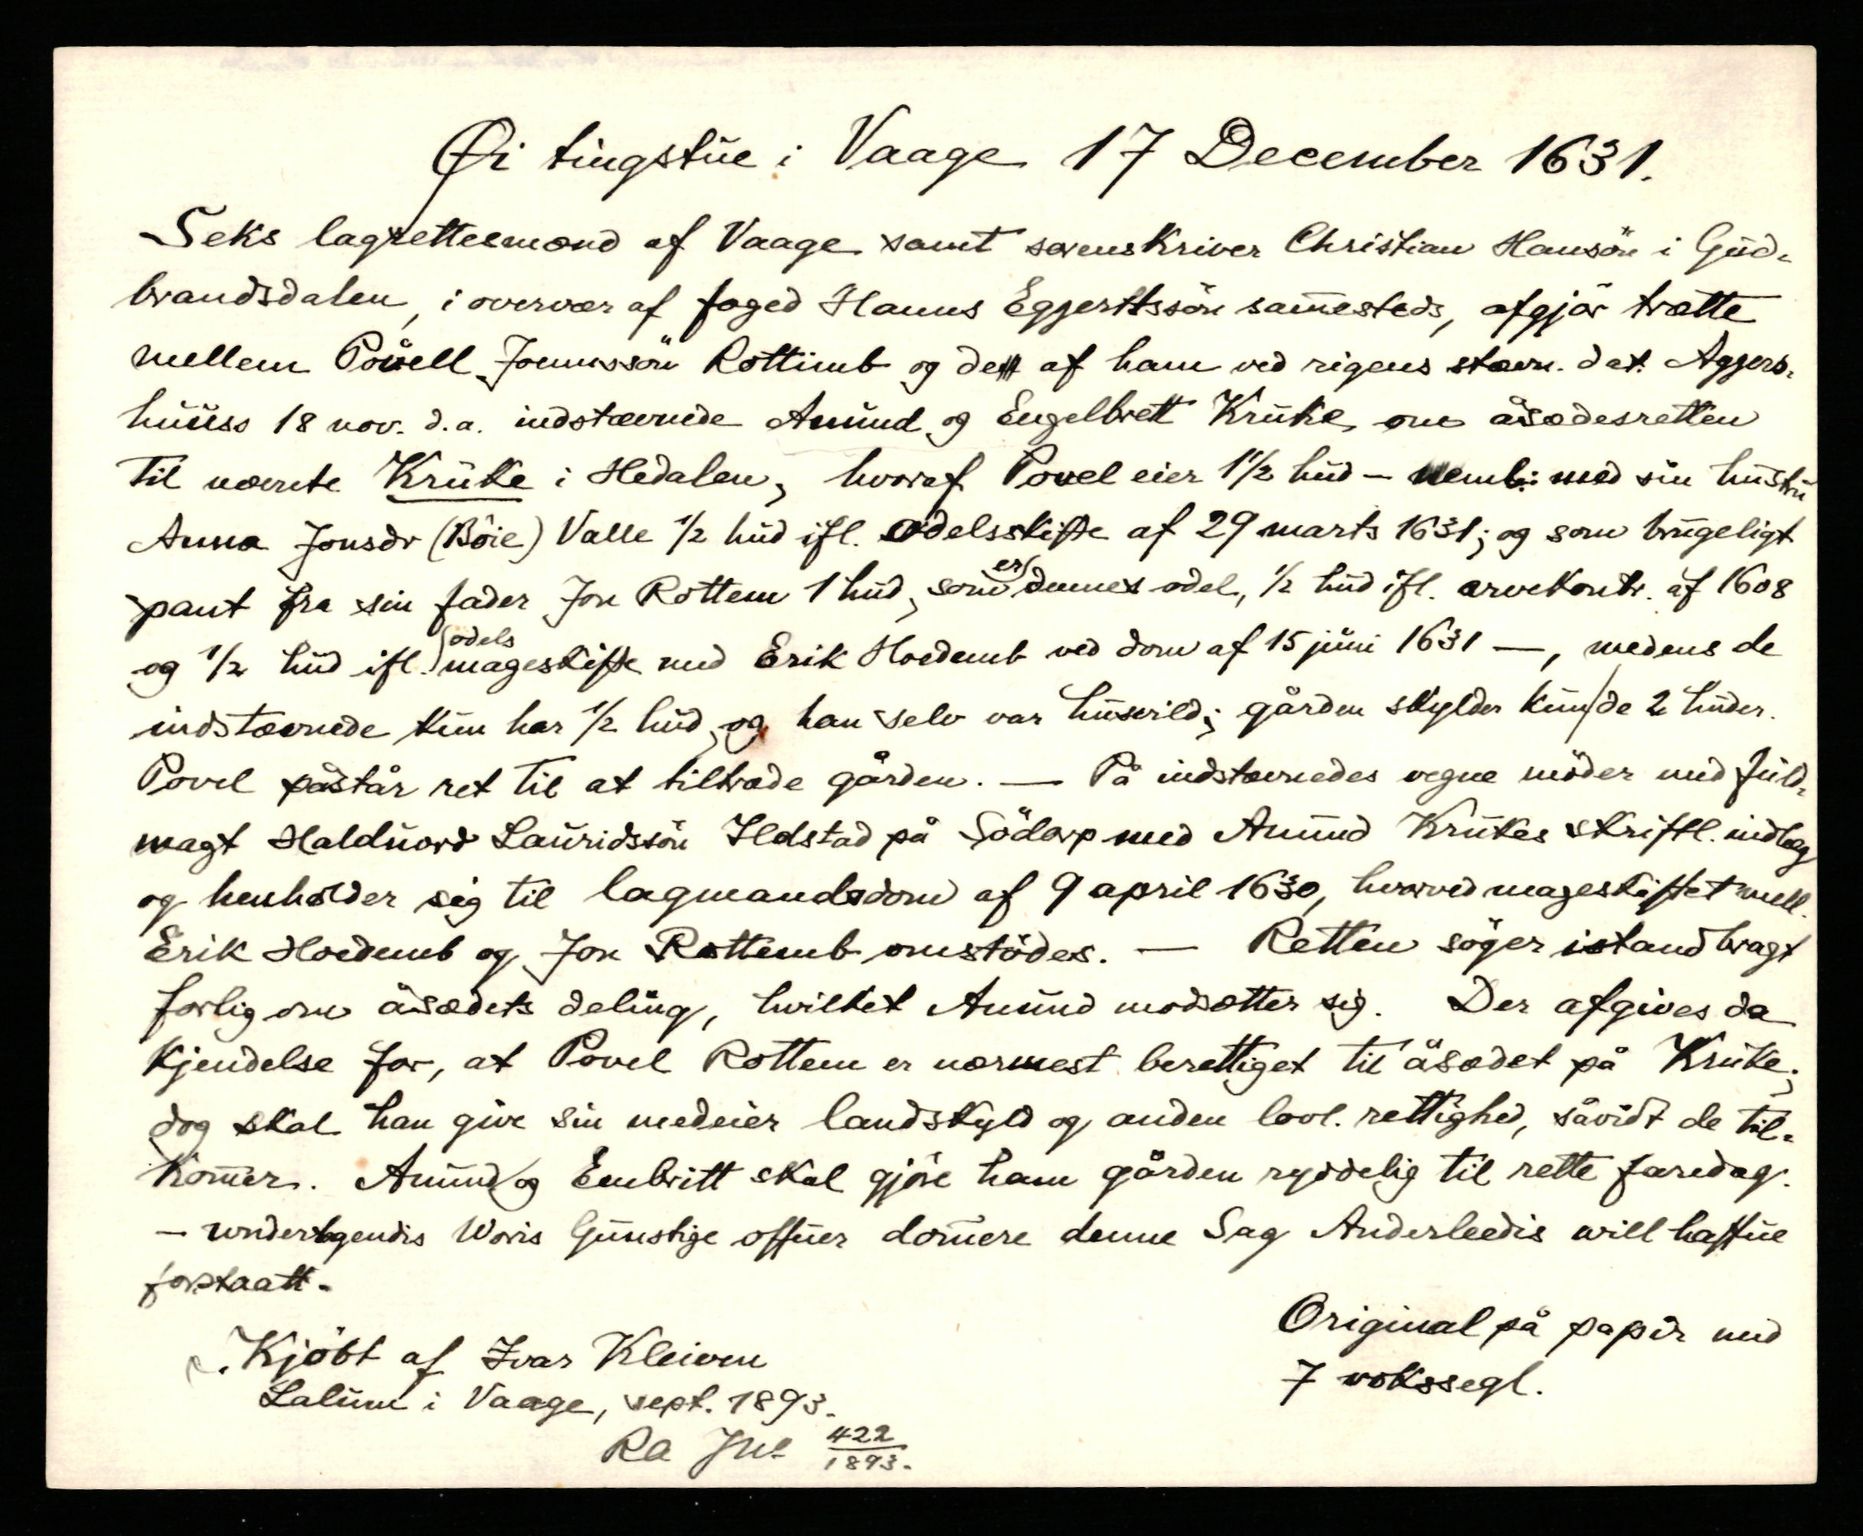 Øi tingstue i Vaage 17 December 1631.
Seks lagrettesmænd af Vaage samt sorenskriver Christian Hansön i Gud-
brandsdalen, i overvær af foged Hanns Eggertssön sam̄esteds, afgjör trætte
mellem Povell Joennssön Rottimb og de af ham ved rigens stævn. dat. Aggers-
huuss 18 nov. d.a. indstævnede Amund og Engelbrett Kruke om åsædesretten
til nævnte Kruke i Hedalen, hvoraf Povel eier 1 1/2 hud – nemb: med sin hustru
Anna Jonsdr (Böie) Valle 1/2 hud ifl. odelsskifte af 29 marts 1631; og som brugeligt
pant fra sin fader Jon Rottem 1 hud, som er dennes odel, 1/2 hud ifl. arvekontr. af 1608
og 1/2 hud ifl. odels mageskifte med Erik Hoedemb ved dom af 15 juni 1631 –, medens de
indstævnede kun har 1/2 hud, og han selv var husvild; gården skylder kun de 2 huder.
Povel påstår ret til at tiltræde gården. — På indstævnedes vegne möder med fuld-
magt Halduord Lauridssön Ildstad på Södorp med Amund Krukes skriftl. indlæg
og henholder sig til lagmandsdom af 9 april 1630, hvorved mageskiftet mell.
Erik Hoedemb og Jon Rottemb omstödes. — Retten söger istandbragt
forlig om åsædets deling, hvilket Amund modsætter sig. Der afgives da
Kjendelse for, at Povel Rottem er nærmest berettiget til åsædet på Kruke;
dog skal han give sin medeier landskyld og anden lovl. rettighed, såvidt de til-
kom̄er. Amund og Embritt skal gjöre ham gården ryddelig til rette faredag.
– undertagendis Woris Gunstige offuer dom̄ere denne Sag Anderleedis will haffue
forstaatt.
Original på papir med
7 vokssegl.
Kjöbt af Ivar Kleiven
Lalum i Vaage, sept. 1893.
RA Jnl 422/1893.